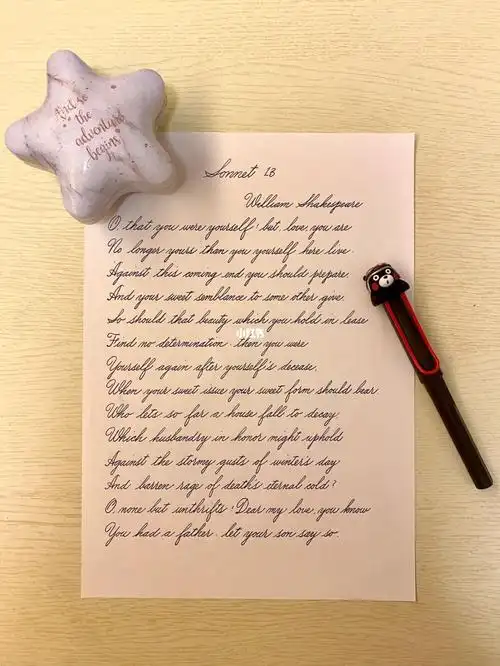 And so
the
adventure
begins
Sonnet 13
William Shakespeare
O, that you were yourself! but, love you are
No longer yours than you yourself here live.
Against this coming end you should prepare.
And your sweet semblance to some other give.
So should that beauty which you hold in lease
小红书
Find no determination. then you were
Yourself again after yourself's decease,
When your sweet issue your sweet form should bear
Who lets so far a house fall to decay,
Which husbandry in honor might uphold
Against the stormy gusts of winter's day
And barren rage of death's eternal cold?
O, none but unthrifts! Dear my love, you know
You had a father. let your son say so.